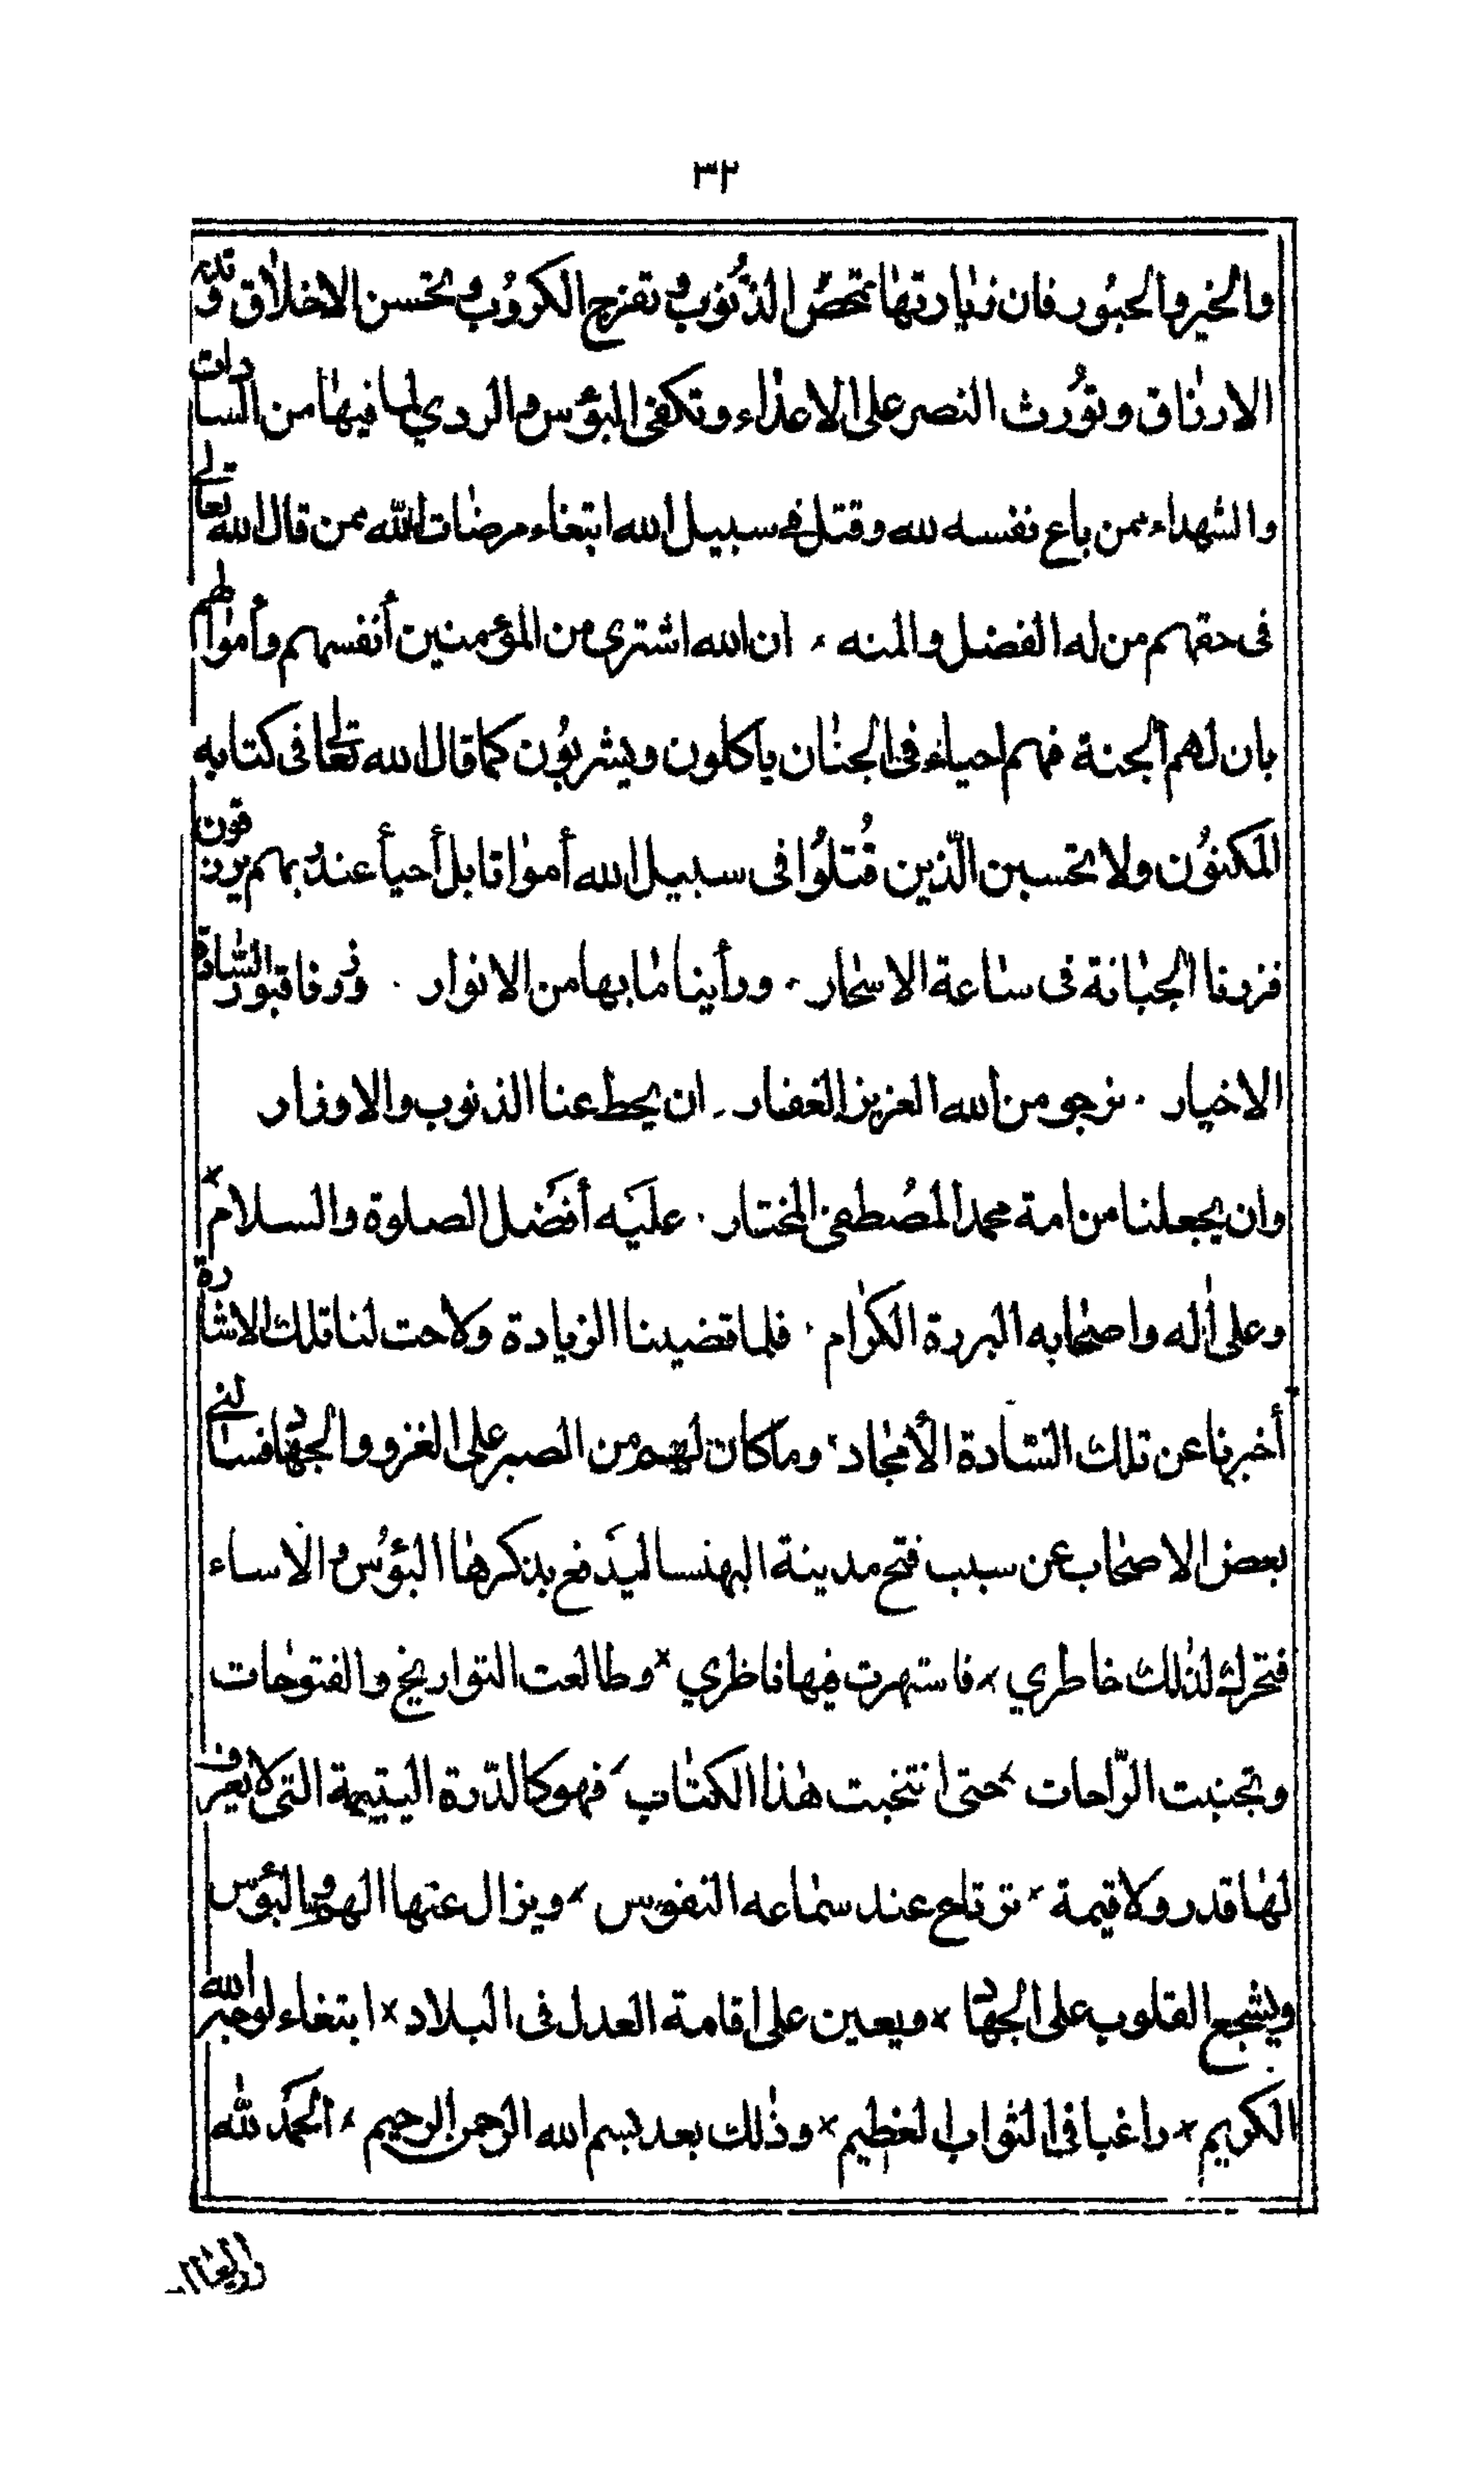 ٣٢
والخير والحبُور فان زيارتها تمحّصُ الذّنُوب و تفرج الكرُوب وتحسن الاخلاق و تدر
الارزاق وتوُرث النصر على الاعذاء وتكفى البؤس والردي لما فيها من السادات
والشهداء ممن باع نفسه لله وقتل فى سبيل الله ابتغاء مرضات الله ممن قال الله تعالى
فى حقهم من له الفضل والمنه ، ان الله اشترى من المؤمنين أنفسهم وأموالهم
بان لهم الجنة فهم احياء فى الجنان ياكلون ويشربوُن كما قال الله تعالى فى كتابه
المكنوُن ولا تحسبن الّذين قُتلُوا فى سبيل الله أمواتا بل أحيأ عند ربهم يرزقون
فزرنا الجبانة فى ساعة الاسحار . ورأينا ما بها من الانوار . وزرنا قبور السّادة
الاخيار . نرجو من الله العزيز الغفار . ان يحط عنا الذنوب والاوزار
وان يجعلنا من امة محمد المُصطفى المختار . عليَه أفضَل الصلوة والسلام ×
وعلى اٰله واصحابه البررة الكرام . فلما قضينا الزيادة ولاحت لنا تلك الاشارة
أخبرنا عن تلك السّادة الأمجاد . وما كان لهم من الصبر على الغزو والجهاد فسالنى
بعض الاصحاب عن سبب فتح مدينة البهنسا ليَدفع بذكرها البؤُس والاساء
فتحرك لذٰلك خاطري × فاستهرت فيها ناظري × وطالعت التواريخ والفتوحات
وتجنبت الرّاحات × حتى انتخبت هٰذا الكتاب × فهو كالدّرة اليتيمة التى لا يعرف
لها قدر ولا قيمة × ترتاح عند سماعه النفوس × ويزال عنها الهم والبؤس
ويشجع القلوب على الجهاد × ويعين على اقامة العدل فى البلاد × ابتغاء لوجه الله
الكريم × راغبا فى الثواب العظيم × وذٰلك بعد بسم الله الرحمن الرحيم × الحَمد لله